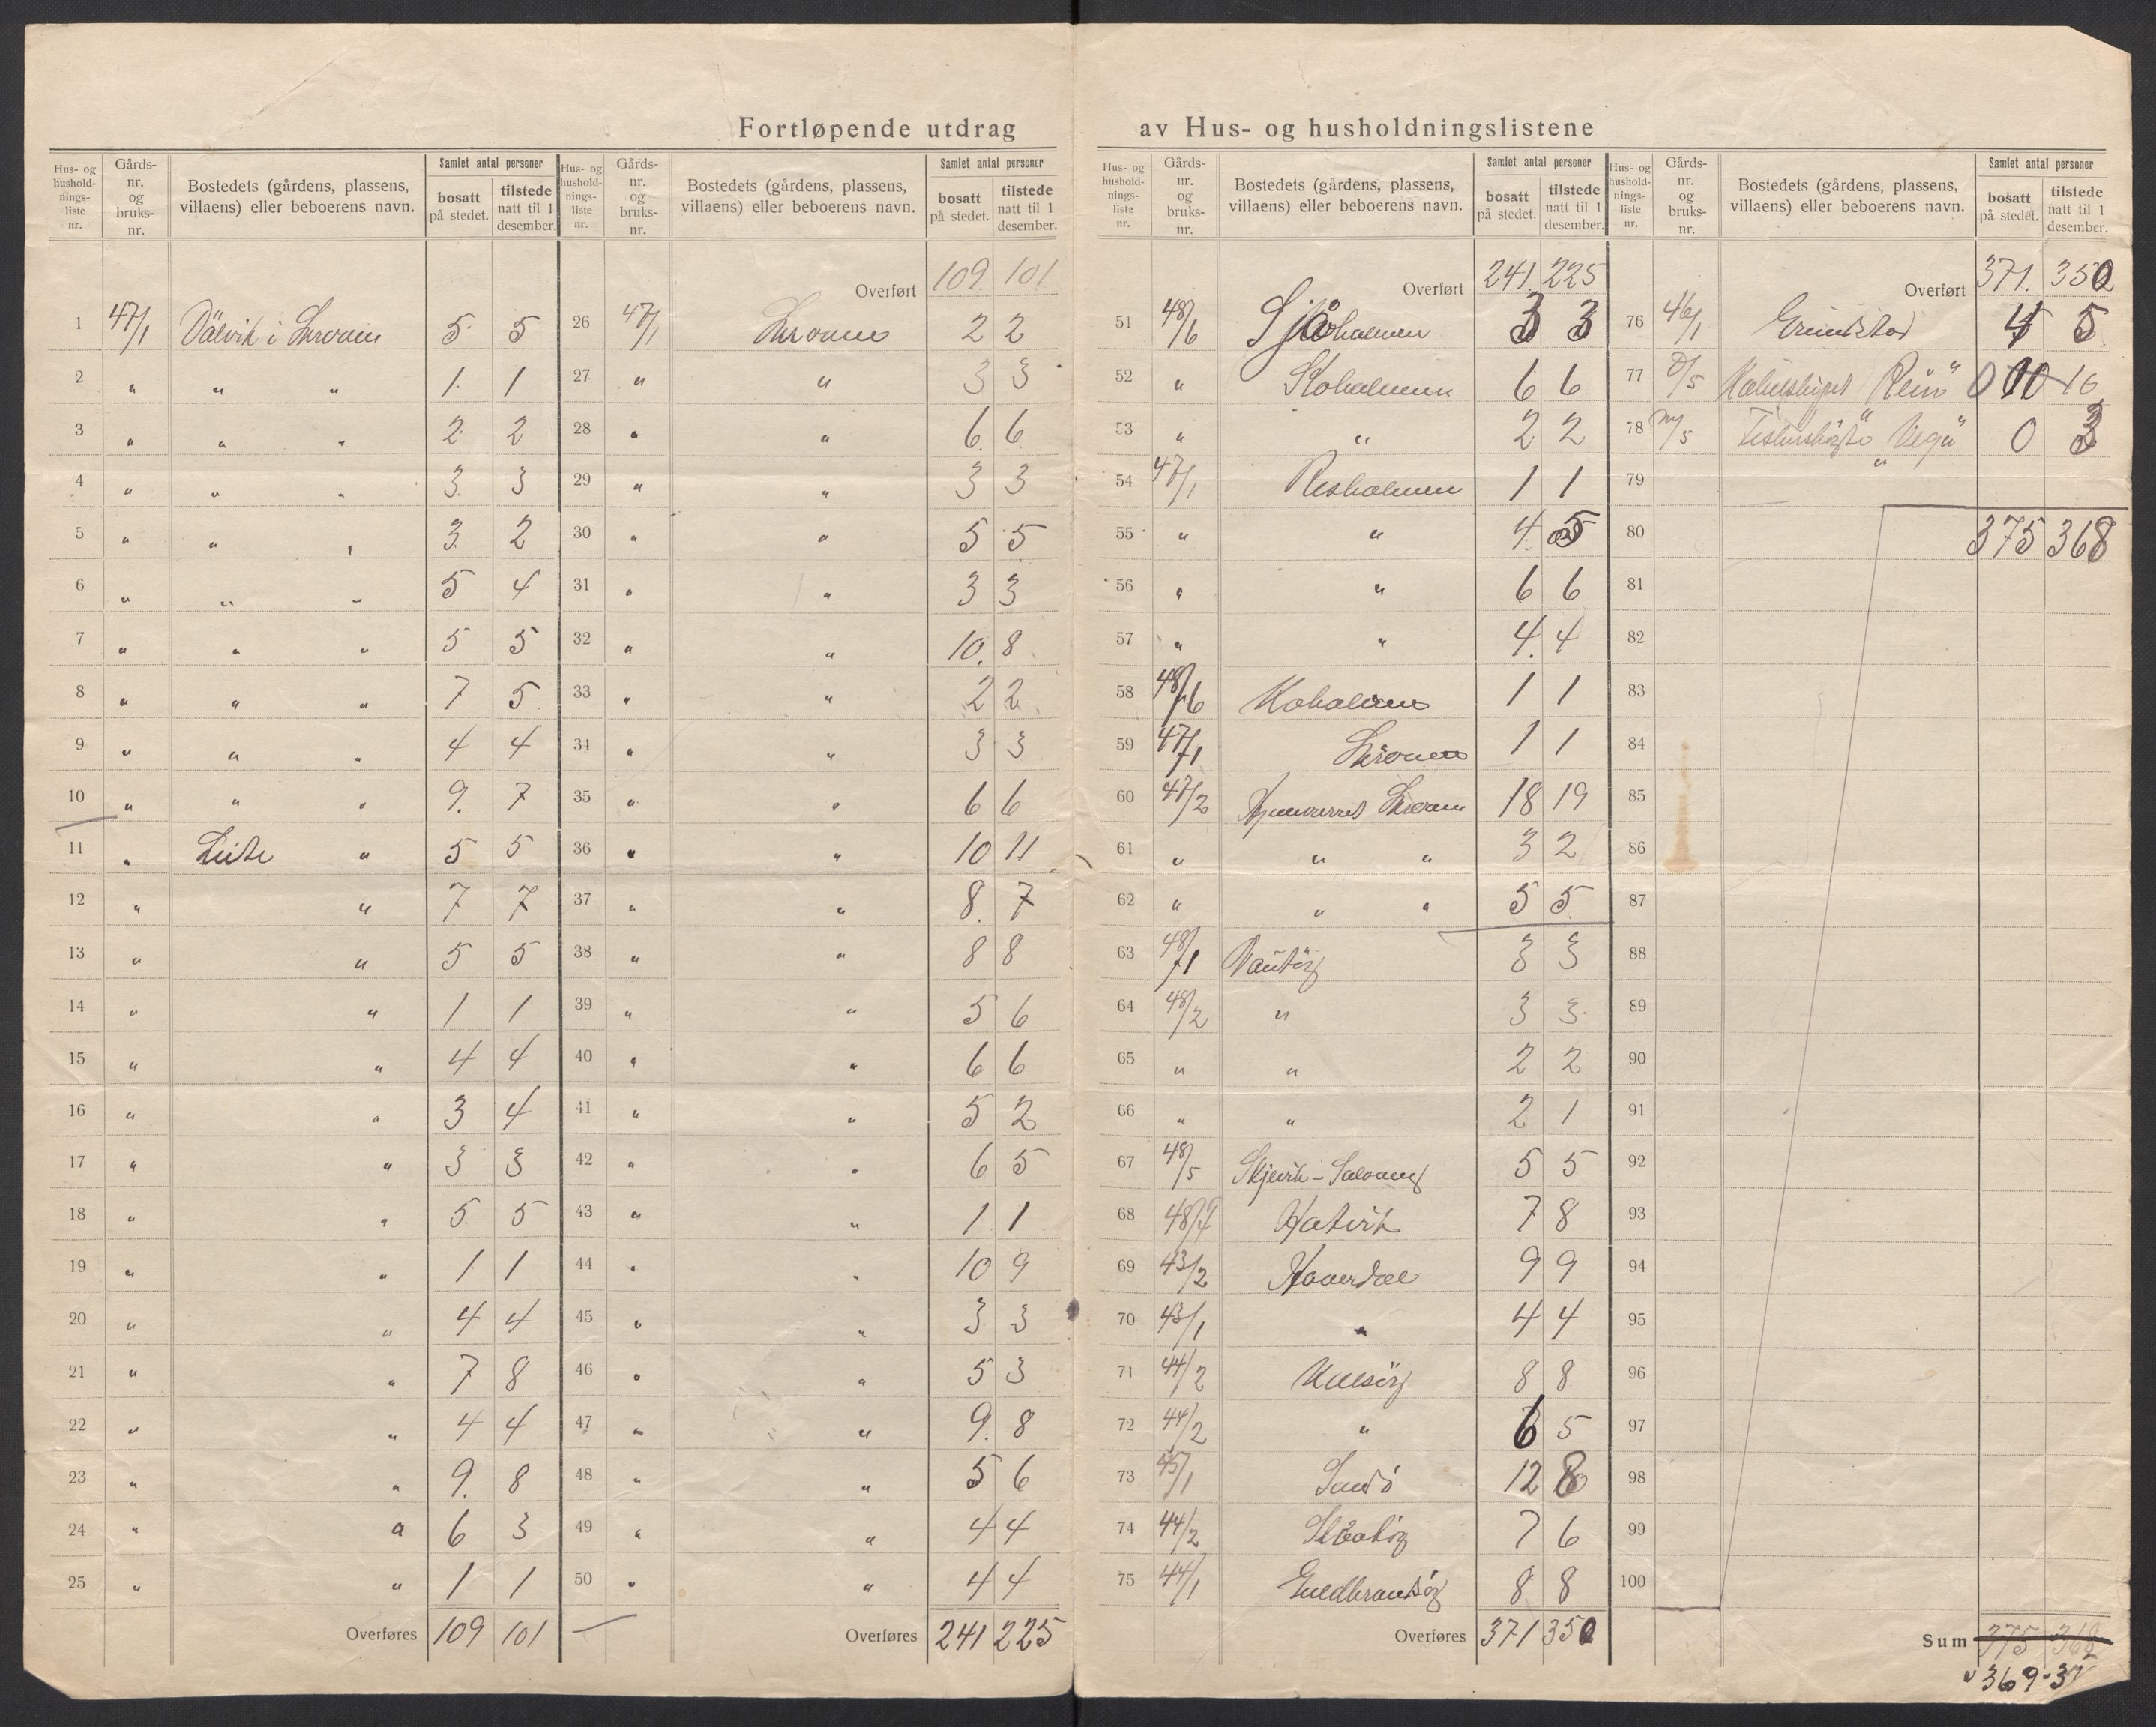 Fortløpende utdrag av Hus- og husholdningslistene
Hus- og hushold-nings-liste nr. | Gårds-nr. og bruks-nr. | Bostedets (gårdens, plassens, villaens) eller beboerens navn. | Samlet antal personer bosatt på stedet. | tilstede natt til 1 desember.
1 47/1 Dålvik i 5 5
2 " " " 1 1
3 " " " 2 2
4 " " " 3 3
5 " " " 3 2
6 " " " 5 4
7 " " " 5 5
8 " " " 7 5
9 " " " 4 4
10 " " " 9 7
11 " " 5 5
12 " " 7 7
13 " " 5 5
14 " " 1 1
15 " " 4 4
16 " " 3 4
17 " " 3 3
18 " " 5 5
19 " " 1 1
20 " " 4 4
21 " " 7 8
22 " " 4 4
23 " " 9 8
24 " " 6 3
25 " " 1 1
Overføres 109 101
Hus- og hushold-nings-liste nr. | Gårds-nr. og bruks-nr. | Bostedets (gårdens, plassens, villaens) eller beboerens navn. | Samlet antal personer bosatt på stedet. | tilstede natt til 1 desember.
Overført 109 101
26 47/1 2 2
27 " " 3 3
28 " " 6 6
29 " " 3 3
30 " " 5 5
31 " " 3 3
32 " " 10 8
33 " " 2 2
34 " " 3 3
35 " " 6 6
36 " " 10 11
37 " " 8 7
38 " " 8 8
39 " " 5 6
40 " " 6 6
41 " " 5 2
42 " " 6 5
43 " " 1 1
44 " " 10 9
45 " " 3 3
46 " " 5 3
47 " " 9 8
48 " " 5 6
49 " " 4 4
50 " " 4 4
Overføres 241 225
Hus- og hushold-nings-liste nr. | Gårds-nr. og bruks-nr. | Bostedets (gårdens, plassens, villaens) eller beboerens navn. | Samlet antal personer bosatt på stedet. | tilstede natt til 1 desember.
Overført 241 225
51 48/6 3 3
52 " Koholmen 6 6
53 " " 2 2
54 47/1 Resholmen 1 1
55 " " 4 5
56 " " 6 6
57 " " 4 4
58 48/6 1 1
59 47/1 1 1
60 47/2 18 19
61 " " " 3 2
62 " " " 5 5
63 48/1 3 3
64 48/2 " 3 3
65 " " 2 2
66 " " 2 1
67 48/5 5 5
68 Hatvik 7 8
69 43/2 9 9
70 43/1 " 4 4
71 44/2 8 8
72 44/2 " 6 5
73 45/1 12 8
74 44/2 7 6
75 44/1 Guldbransöy 8 8
Overføres 371 350
Hus- og hushold-nings-liste nr. | Gårds-nr. og bruks-nr. | Bostedets (gårdens, plassens, villaens) eller beboerens navn. | Samlet antal personer bosatt på stedet. | tilstede natt til 1 desember.
Overført 371 350
76 46/1 4 5
77 "Rein" 0 10
78 "Vega" 0 3
79
80 375 368
81
82
83
84
85
86
87
88
89
90
91
92
93
94
95
96
97
98
99
100
Sum 375 368